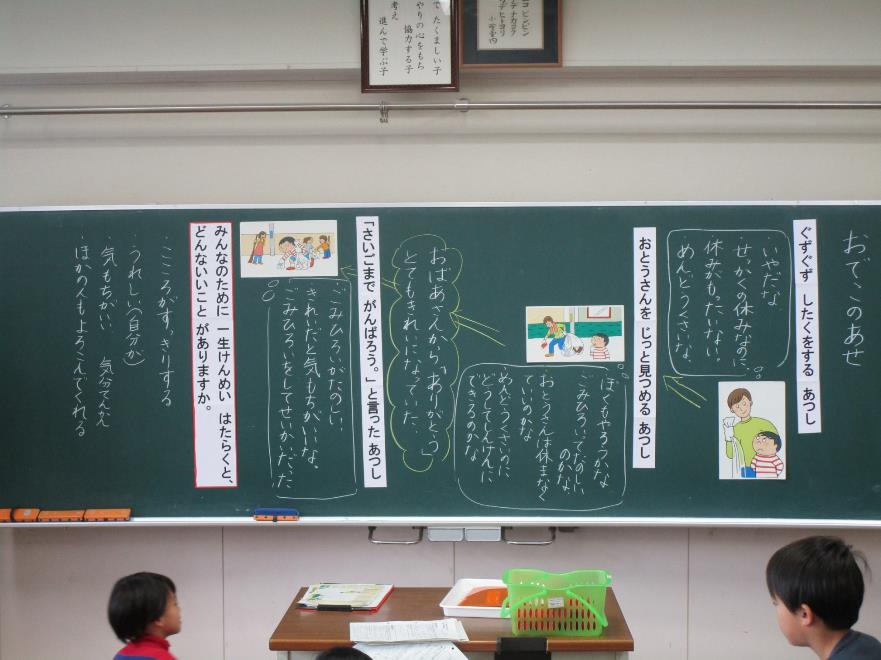 おでこのあせ
ぐずぐず したくをする あつし
・いやだな
せっかくの休みなのに、
休みがもったいない。
めんどうくさいな。
おとうさんを じっと見つめる あつし
ぼくもやろうかな
ごみひろいってたのしい
のかな。
おとうさんは休まなく
ていいのかな
めんどうくさいのに、
どうしてしんけんに
できるのかな
おばあさんから「ありがとう」
とてもきれいになっていた。
「さいごまで がんばろう。」と言った あつし
ごみひろいがたのしい。
きれいだと気もちがいいな。
ごみひろいをしてせいかいだった
みんなのために 一生けんめい はたらくと、
どんないいこと がありますか。
・こころがすっきりする
・うれしい(自分が)
・気もちがいい
・ほかの人もよろこんでくれる
たくましい子
やりの心をもち
協力する子
考え
進んで学ぶ子